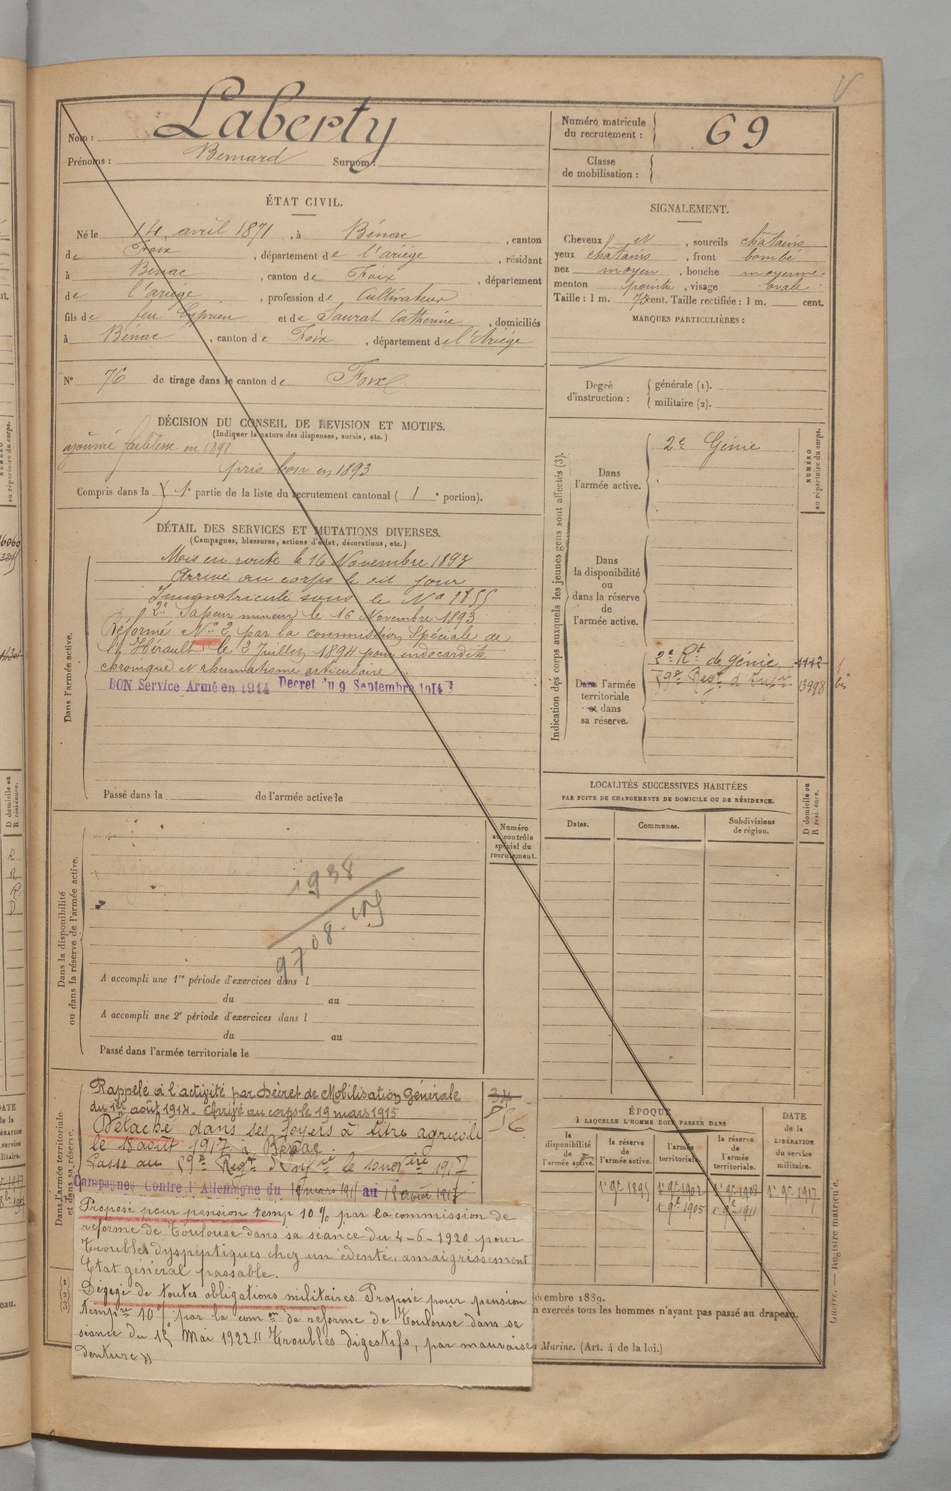 Nom : Laberty
Prénoms : Bernard Surnom :
Numéro matricule du recrutement : 69
Classe de mobilisation :
ÉTAT CIVIL.
Né le 14 avril 1871, à Bénac, canton
de Foix, département de l'ariège, résidant
à Bénac, canton de Foix, département
de l'ariège, profession de Cultivateur
fils de feu Cyprien et de Saurat Catherine, domiciliés
à Bénac, canton de Foix, département de l'Ariège
N° 76 de tirage dans le canton de Foix
SIGNALEMENT.
Cheveux N, sourcils chatains
yeux chatains, front bombé
nez moyen, bouche moyenne
menton pointu, visage ovale
Taille : 1 m. cent. Taille rectifiée : 1 m. cent.
MARQUES PARTICULIÈRES :
Degré d'instruction : générale (1).
militaire (2).
DÉCISION DU CONSEIL DE REVISION ET MOTIFS.
(Indiquer la nature des dispenses, sursis, etc.)
ajourné faiblesse en 1892
pris bon en 1893
Compris dans la 1e partie de la liste du recrutement cantonal ( 1 e portion).
DÉTAIL DES SERVICES ET MUTATIONS DIVERSES.
(Campagnes, blessures, actions d'éclat, décorations, etc.)
Dans l'armée active.
Mis en route le 16 Novembre 1893
Arrivé au corps le dit jour
Immatriculé sous le No
2e Sapeur mineur le 16 Novembre 1893
Réformé No 2 par la commission Spéciale de
l'Hérault le 3 Juillet 1894 pour endocardite
chronique rhumatisme articulaire
BON Service Armé en 1914 Decret du 9 Septembre 1914
Passé dans la de l'armée active le
Indication des corps auxquels les jeunes gens sont affectés (3).
NUMÉRO au répertoire du corps.
Dans l'armée active.
2e Génie
Dans la disponibilité ou dans la réserve de l'armée active.
Dans l'armée territoriale et dans sa réserve.
2e Rt de Génie 1112
Regt d'Infie 3998 bis
LOCALITÉS SUCCESSIVES HABITÉES
PAR SUITE DE CHANGEMENTS DE DOMICILE OU DE RÉSIDENCE.
D domicile ou R résidence.
Dates. Communes. Subdivisions de région.
Dans la disponibilité ou dans la réserve de l'armée active.
Numéro au contrôle spécial du recrutement.
1938
9708
A accompli une 1re période d'exercices dans l
du au
A accompli une 2e période d'exercices dans l
du au
Passé dans l'armée territoriale le
Dans l'armée territoriale et dans sa réserve.
Rappelé à l'activité par Décret de Mobilisation Générale
du 1er août 1914. Arrivé au corps le 19 mars 1915
Détaché dans ses foyers à titre agricole
le 18 août 1917 à Bénac
Campagnes Contre l'Allemagne du 19 mars 1915 au 18 août 1917
Proposé pour pension temp 10 % par la commission de
réforme de Toulouse dans sa séance du 4-6-1920 pour
Troubles dyspeptiques chez un édenté, amaigrissement
Etat général passable.
Dégagé de toutes obligations militaires Proposé pour pension
tempre 10 % par la comon de réforme de Toulouse dans sa
séance du Mai 1922 " Troubles digestifs, par mauvaise
denture "
ÉPOQUE
À LAQUELLE L'HOMME DOIT PASSER DANS
la disponibilité de l'armée active. la réserve de l'armée active. l'armée territoriale. la réserve de l'armée territoriale.
DATE de la LIBÉRATION du service militaire.
1 9e 1895
1 9e 1905
1 9e 1911
1 9e 1917
écembre 1889.
n exercés tous les hommes n'ayant pas passé au drapeau.
Marine. (Art. 4 de la loi.)
Guerre. — Registre matricule.